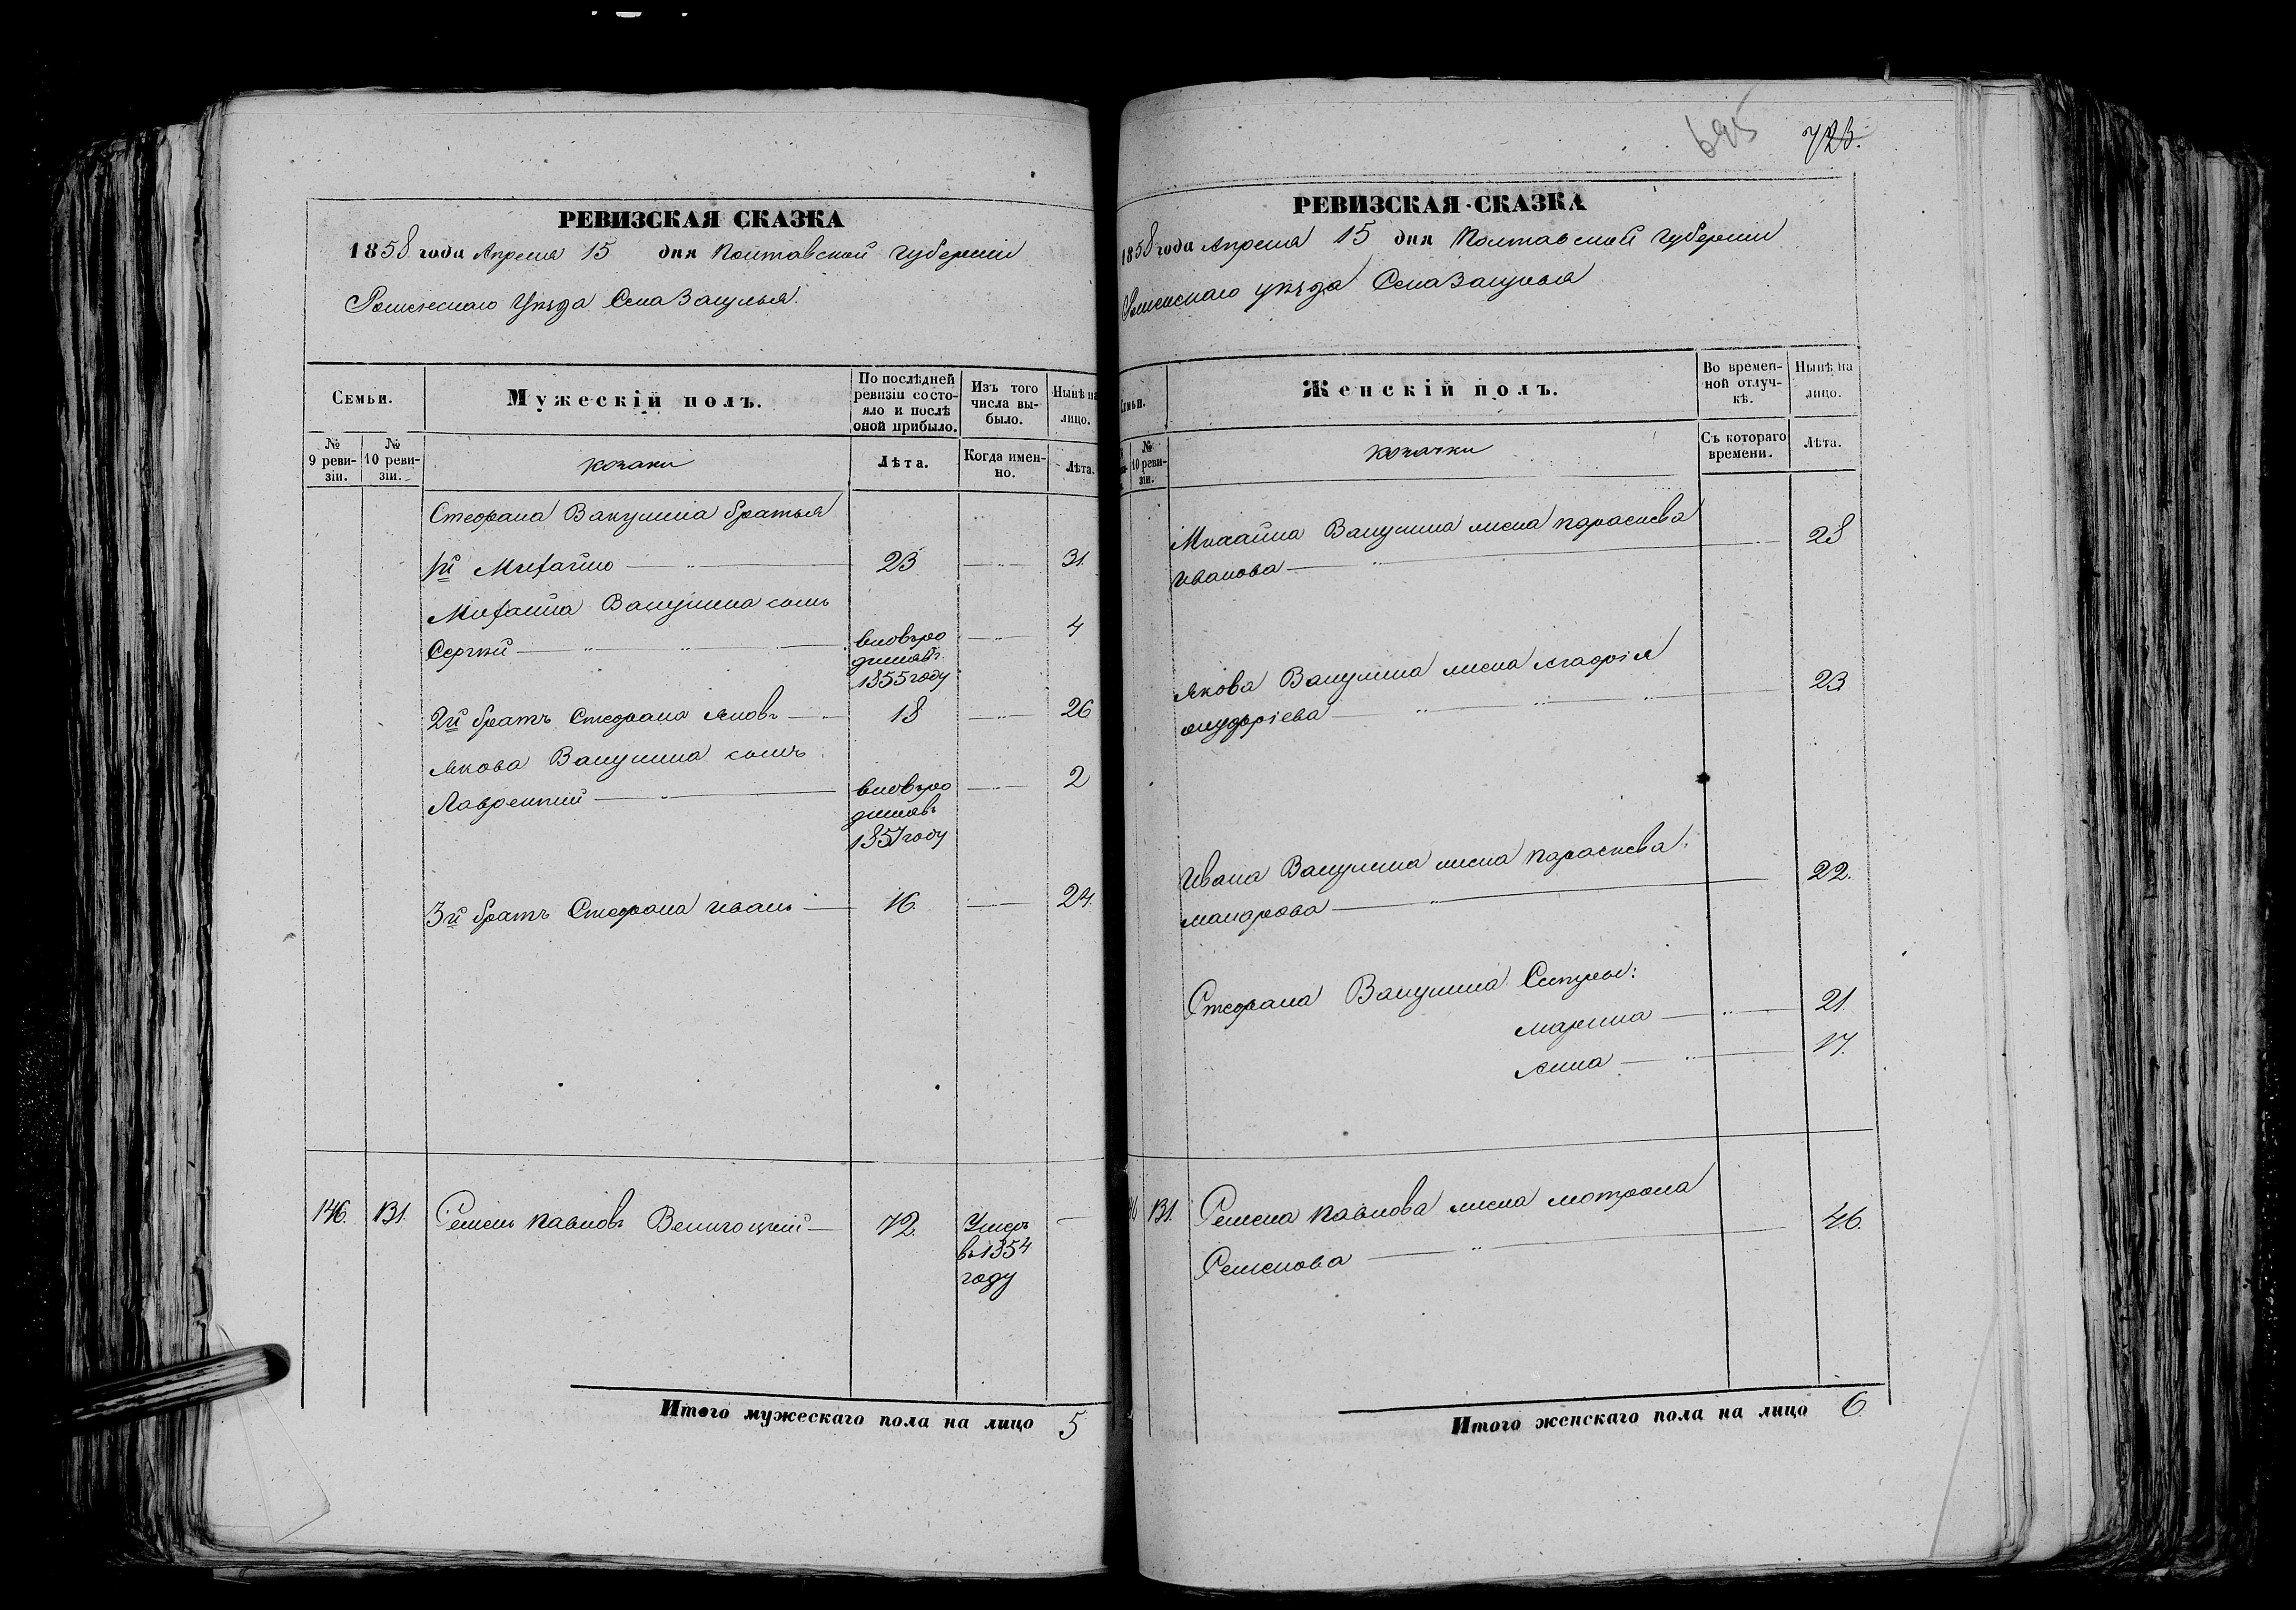 РЕВИЗСКАЯ СКАЗКА
1858 года Апреля 15 дня Полтавской губернии
Роменскаго Уѣзда Села Засулья.
Семьи.
Мужескій полъ.
По послѣдней ревизіи состояло и послѣ оной прибыло.
Изъ того числа выбыло.
Нынѣ на лицо.
№ 9 ревизіи.
№ 10 ревизіи.
козаки
Лѣта.
Когда именно.
Лѣта.
Стефана Вакулина братья
1й Михайло 23 31.
Михайла Вакулина сынъ
Сергѣй вновь ро 4
дился въ
1855 году
2й братъ Стефана Яковъ 18 26
Якова Вакулина сынъ
Лаврентий вновь ро 2
дился въ
1857 году
3й братъ Стефана Иванъ 16. 24.
146. 131. Семенъ Павловъ 72. Умеръ
въ 1854
году
Итого мужескаго пола на лицо 5
695 723.
РЕВИЗСКАЯ СКАЗКА
1858 года Апреля 15 дня Полтавской губернии
Роменскаго уѣзда Села Засулья
Семьи.
Женскій полъ.
Во временной отлучкѣ.
Нынѣ на лицо.
№ 10 ревизіи.
козачки
Съ котораго времени.
Лѣта.
Михайла Вакулина жена Параскева
Иванова 28
Якова Вакулина жена Агафія
23
Ивана Вакулина жена Параскева.
22.
Стефана Вакулина Сестры:
Марина 21.
Анна 17.
131. Семена Павлова жена Мотрона
Семенова 46.
Итого женскаго пола на лицо 6